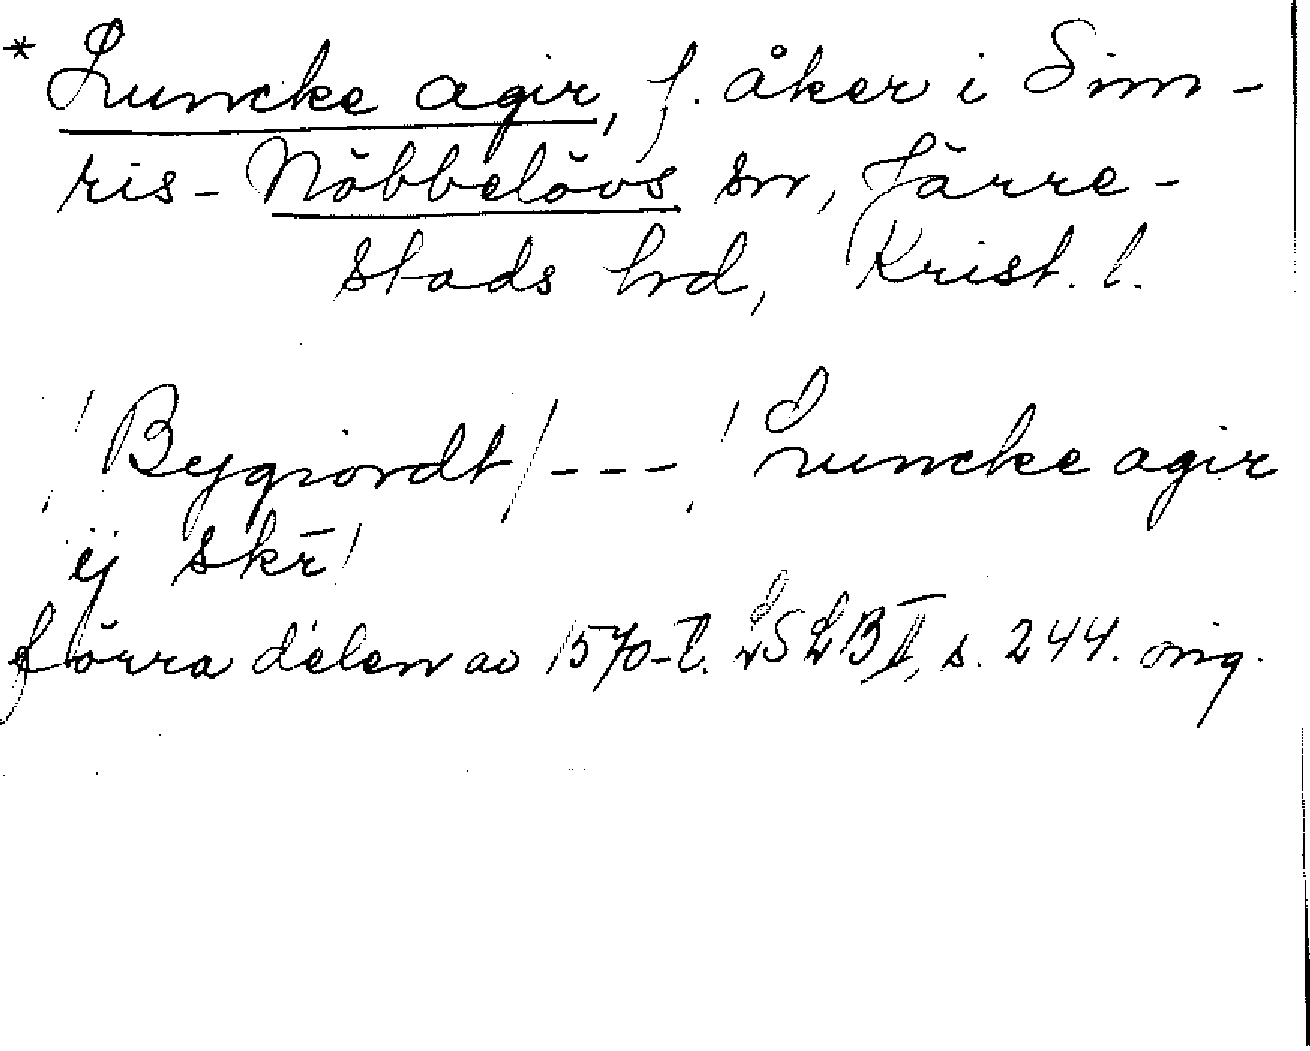 * Luncke agir, f. åker i Sim-
ris-Nöbbelövs sn, Järre-
stads hd, Krist. l.
! Bygiordt / --- ! Luncke agir
ij skr̄ !
förra delen av 1570-t. LSLB II, s. 244. orig.